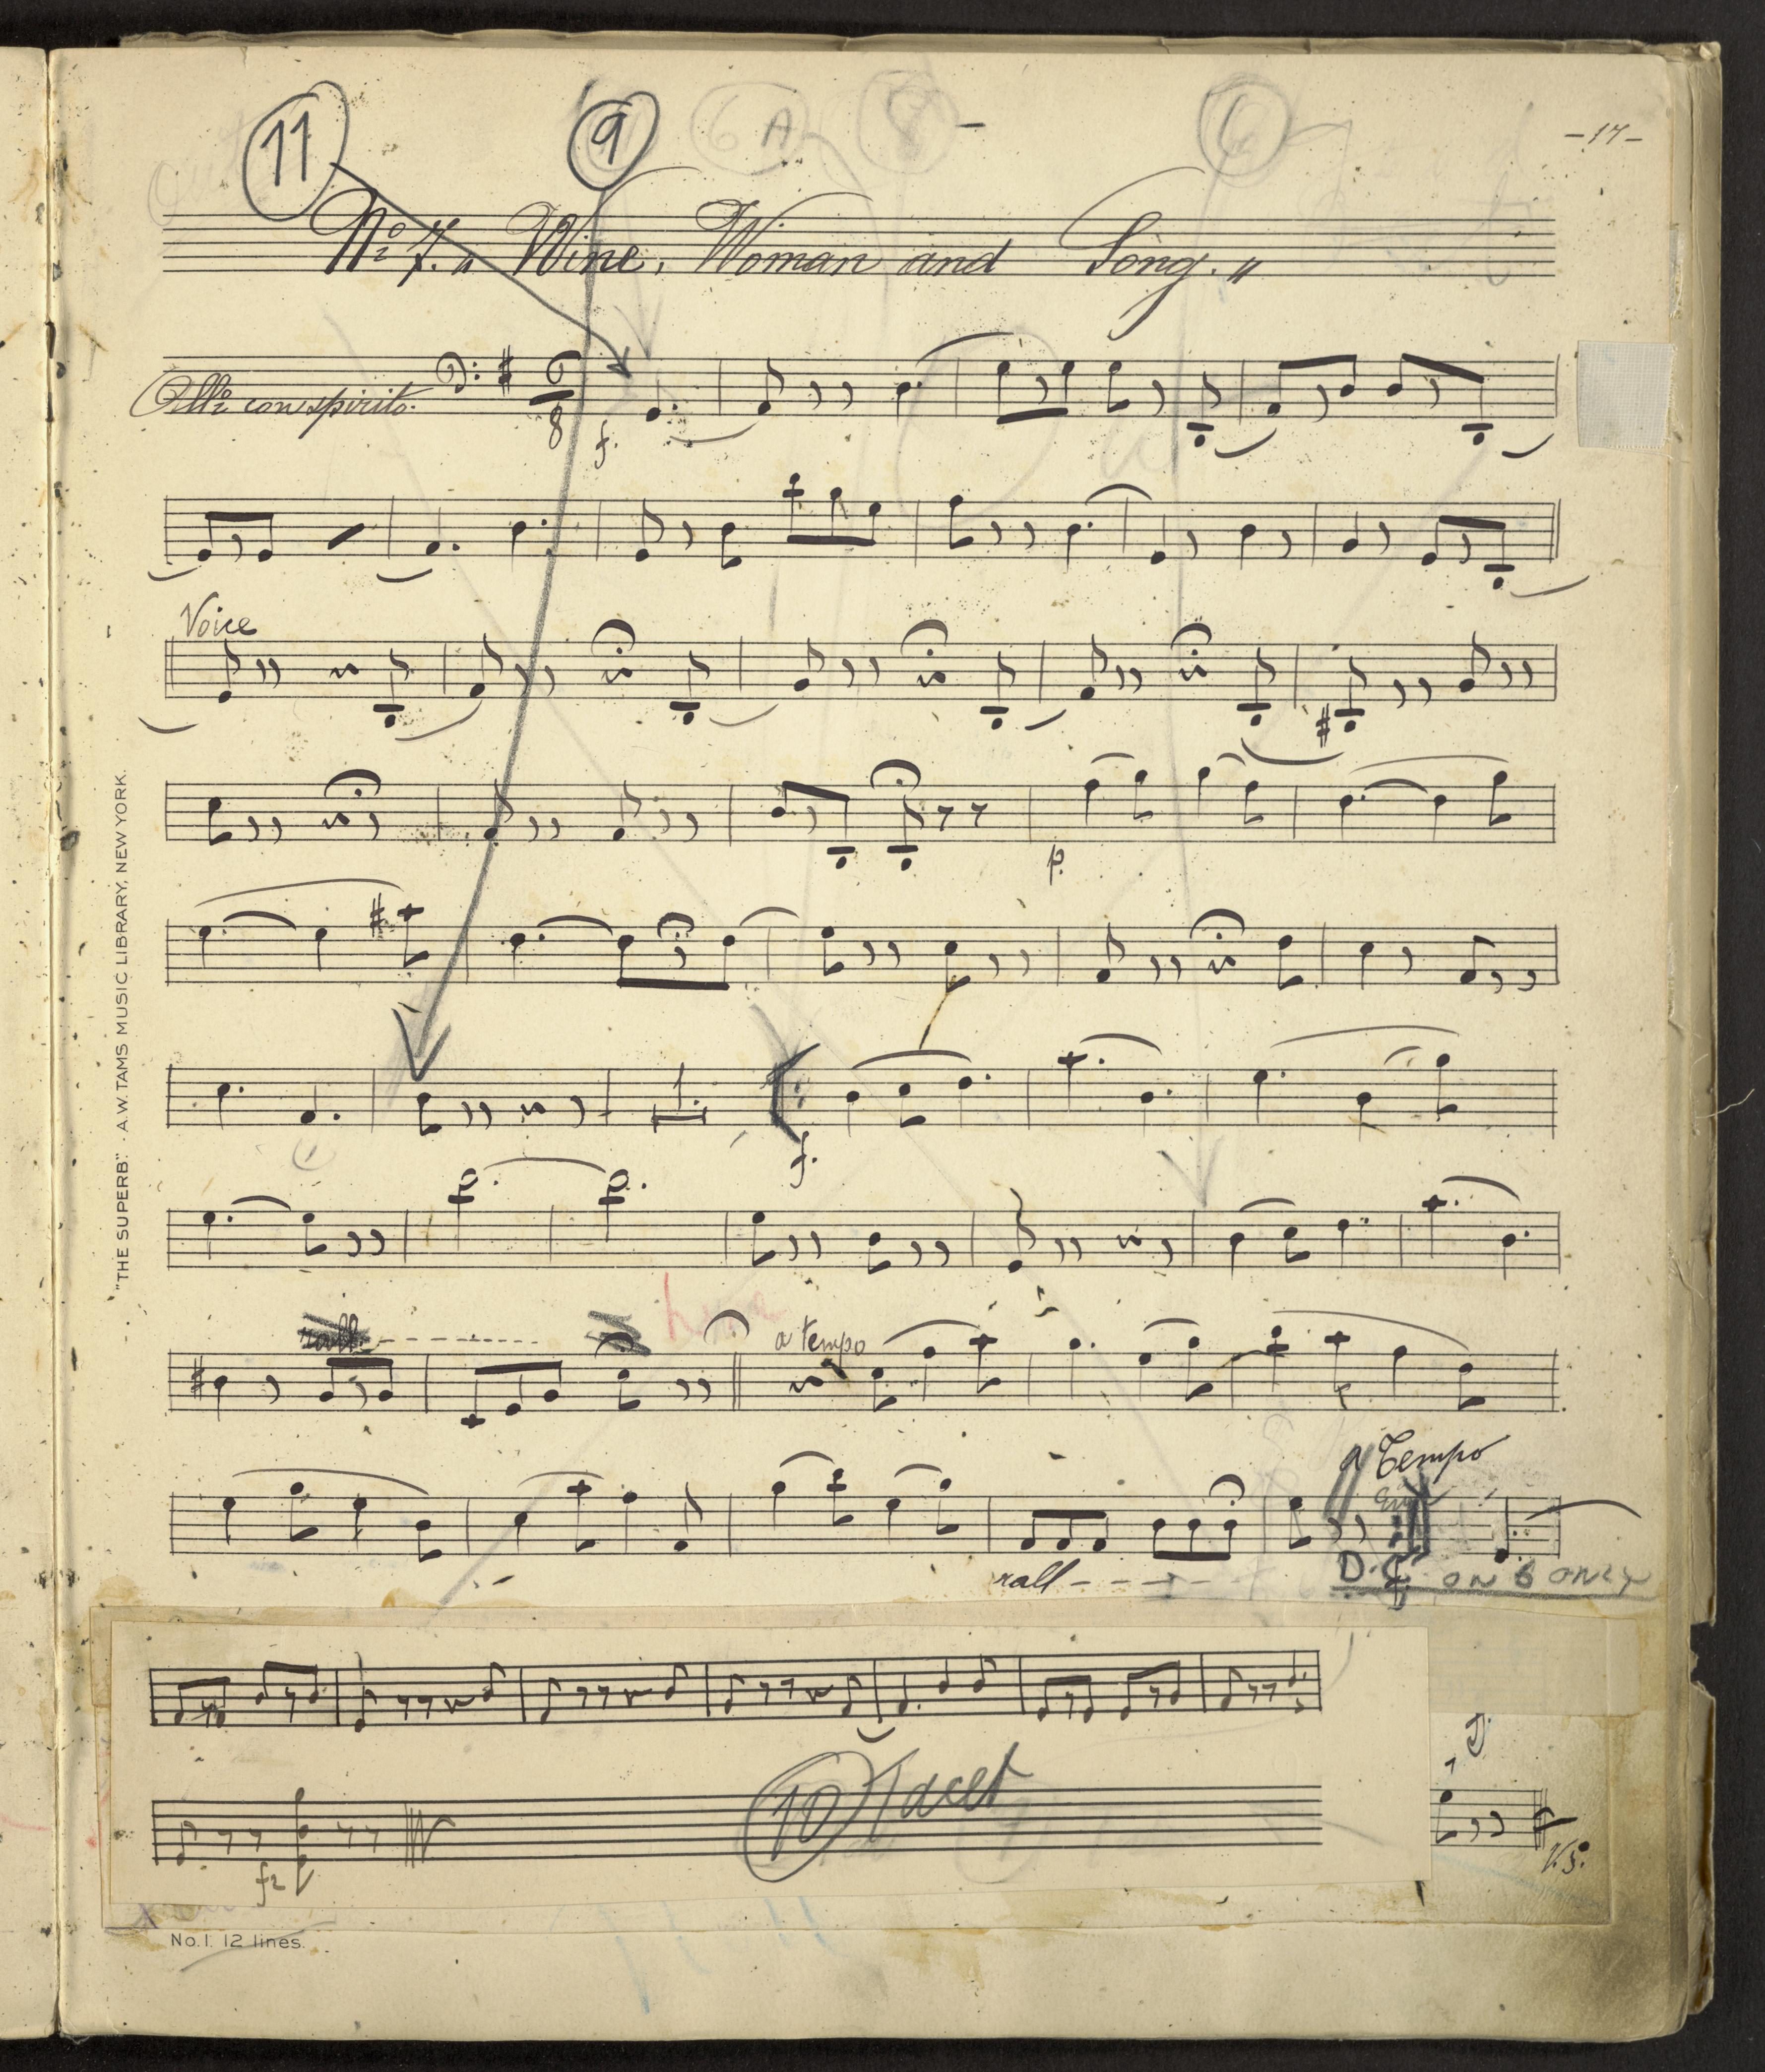 11 9 6A 8 6
-17-
No 7. "Wine, Woman and Song."
Allo con spirito. 6/8 f.
Voice
p.
1.
f.
rall. a tempo
a Tempo
rall D.C. ON 6 ONLY
f.
10 Tacet
fz
V.S.
"THE SUPERB". A.W. TAMS MUSIC LIBRARY, NEW YORK.
No. 1. 12 lines.